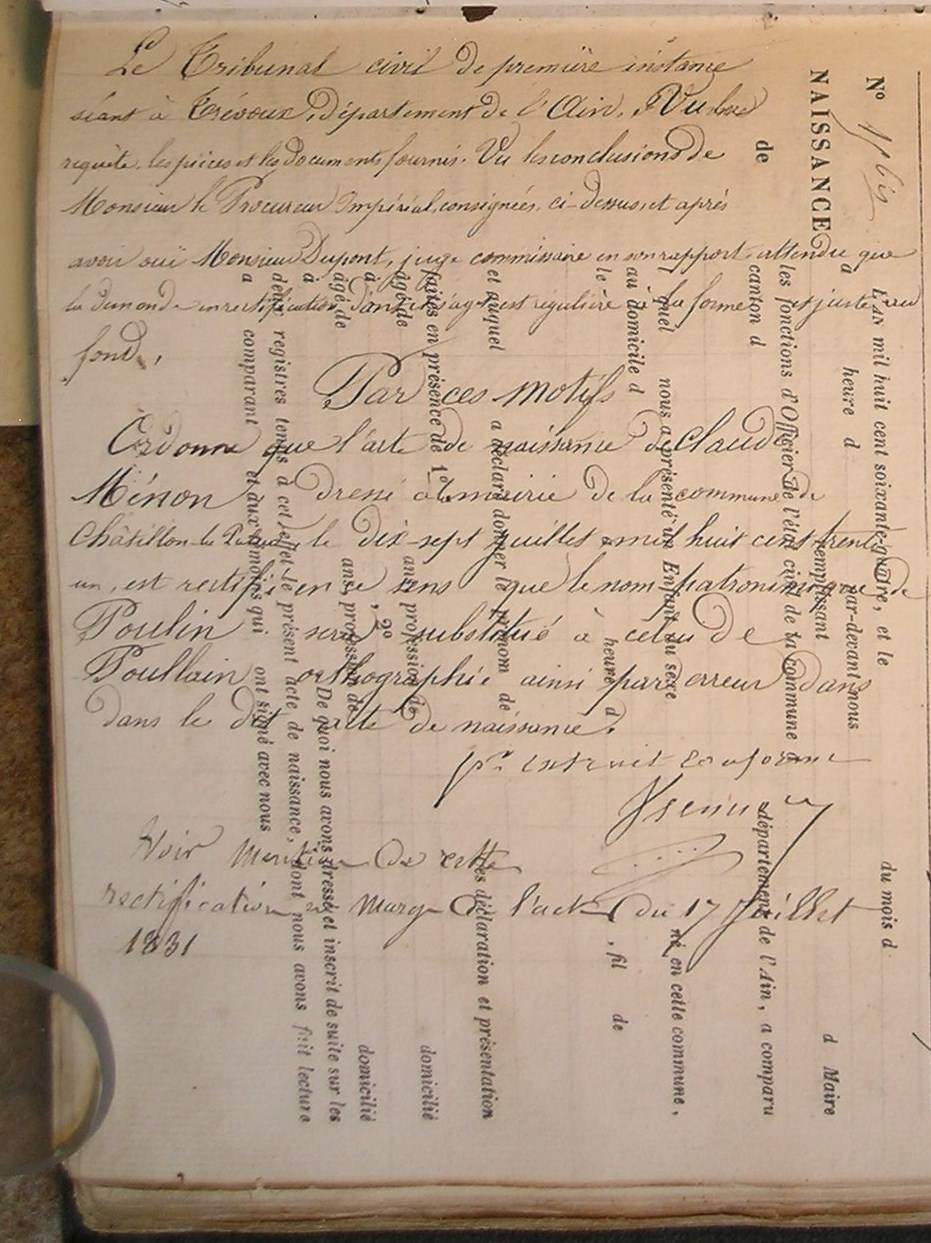 Le Tribunal civil de première instance
séant à Trévoux, département de l'Ain, Vu la
requête, les pièces et les documents fournis. Vu les conclusions de
Monsieur le Procureur Impérial, consignées, ci-dessus, et après
avoir ouï Monsieur Dupont, juge commissaire en son rapport attendu que
la demande en rectification dont il s'agit est régulière en la forme et juste au
fond,
Par ces motifs
Ordonne que l'acte de naissance de Claude
Ménon dressé à la mairie de la commune de
Châtillon-la-Palud le dix-sept juillet mil huit cent trente
un, est rectifié en ce sens que le nom patronimique de
Poulin sera substitué à celui de
Poullain orthographié ainsi par erreur dans
dans le dit acte de naissance.
pr. extrait conforme
Voir mention de cette
rectification en marge de l'acte du 17 Juillet
1831
No 1 bis
NAISSANCE
de
L'AN mil huit cent soixante-quatre, et le du mois d
à heure d par-devant nous
remplissant d Maire
les fonctions d'Officier de l'état civil de la commune d
canton d département de l'Ain, a comparu
lequel nous a présenté un Enfant du sexe né en cette commune,
au domicile d
le heure d , fil de
et auquel a déclaré donner le prénom de
les déclaration et présentation
faites en présence de 1o
âgé de ans, profession de domicilié
à , 2o
âgé de ans, profession de domicilié
à De quoi nous avons dressé et inscrit de suite sur les
deux registres tenus à cet effet le présent acte de naissance, dont nous avons fait lecture
a comparant et aux témoins qui ont signé avec nous